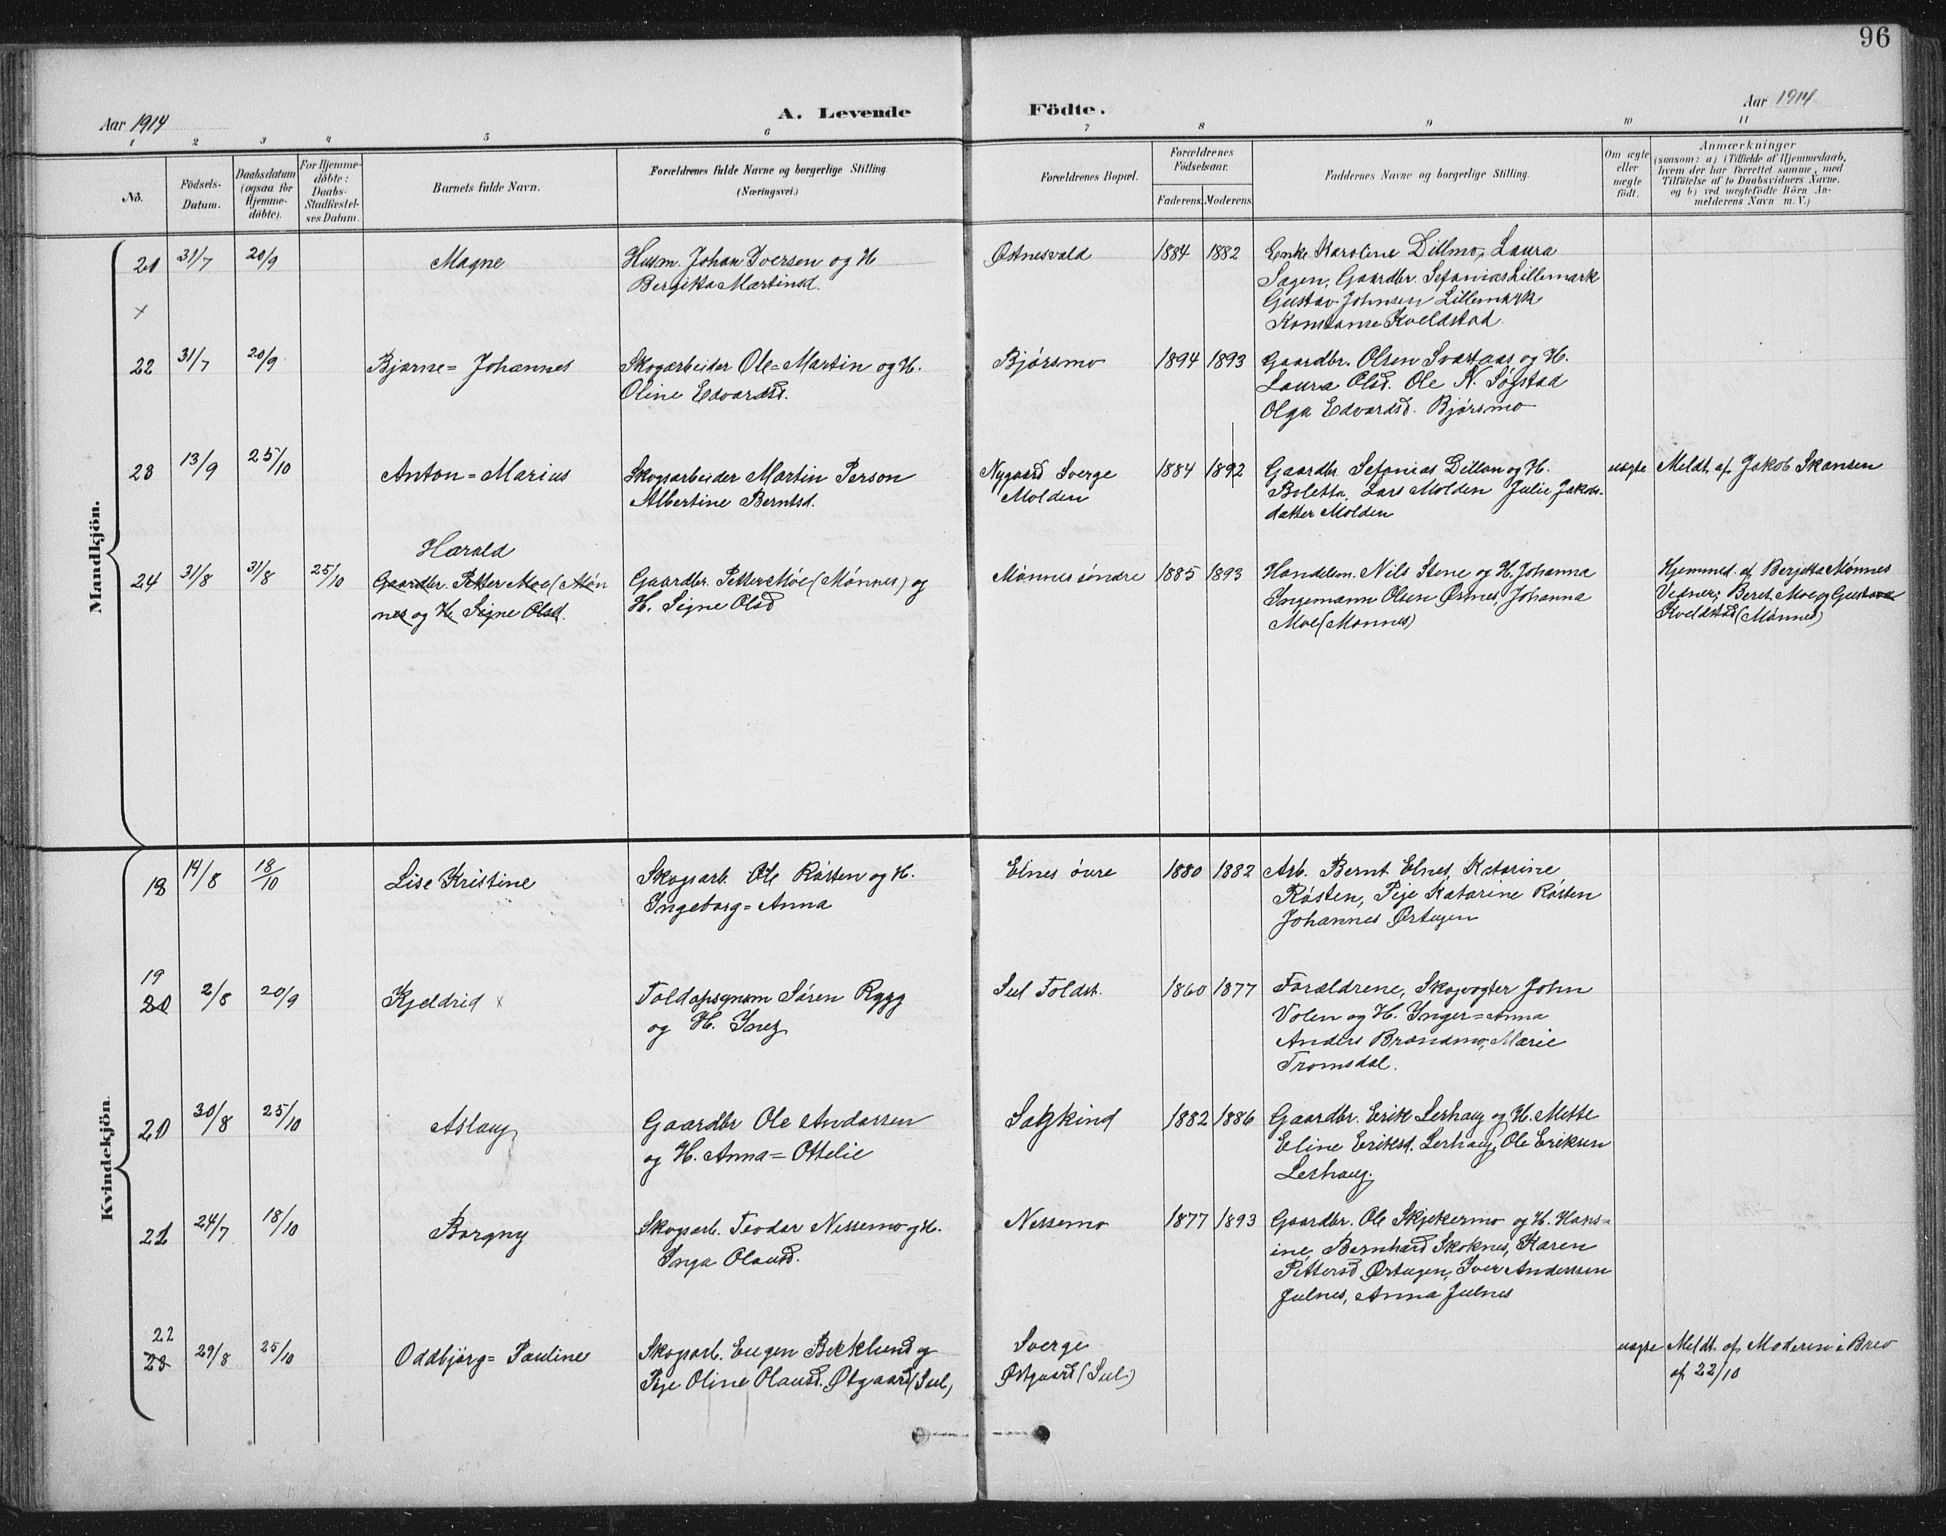 96
Aar 1914
A. Levende Födte.
Aar 1914
1 2 3 4 5 6 7 8 9 10 11
No.
Födsels-Datum.
Daabsdatum (ogsaa for Hjemme-döbte).
For Hjemme-döbte: Daabs-Stadfæstel-ses Datum.
Barnets fulde Navn.
Forældrenes fulde Navne og borgerlige Stilling
(Næringsvei.)
Forældrenes Bopæl.
Forældrenes Födselsaar.
Faderens. Moderens.
Faddernes Navne og borgerlig Stilling.
Om ægte eller uægte födt.
Anmærkninger
(saasom: a) i Tilfælde af Hjemmedaab,
hvem der har forrettet samme, med
Tilföielse af to Daabsvidners Navne.
og b) ved uægtefödte Börn An-
melderens Navn m. V.)
Mandkjön.
21 31/7 20/9 Magne
Husm. Johan Iversen og H
Bergitta Martinsd.
Østnesvald 1884 1882
Enke Karoline Dillmo, Laura
Sagen, Gaardbr. Sefanias Lillemark
Gustav Johnsen Lillemark
Konstanse Kveldstad.
x
22 31/7 20/9 Bjarne= Johannes
Skogarbeider Ole=Martin og H.
Oline Edvardsd.
Bjørsmo 1894 1893
Gaardbr. Olsen Svartaas og H.
Laura Olsd. Ole N. Søgstad
Olga Edvardsd. Bjørsmo
23 13/9 25/10 Anton=Marius
Skogsarbeider Martin Person
Albertine Berntsd.
Nygaard Sverge
Molden
1884 1892
Gaardbr. Sefanias Dillan og H.
Boletta, Lars Molden Julie Jakobs-
datter Molden
uægte Meldt af Jakob Skansen
Harald
24 31/8 31/8 25/10
Gaardbr. Petter Moe (Møn
nes og H. Signe Olsd.
Gaardbr. Petter Moe (Mønnes) og
H. Signe Olsd
Mønnes søndre 1885 1893
Handelsm. Nils Stene og H. Johanna
Ingemann Olsen Østnes, Johanna
Moe (Mønnes)
Hjemmed. af Berjitta Mønnes
Vidner; Beret Moe og Gustava
Kveldstad (Mønnes)
Kvindekjön.
18 14/8 18/10 Lise Kristine
Skogsarb. Ole Røsten og H.
Ingeborg=Anna
Elnes øvre 1880 1882
Arb. Bernt Elnes, Katarine
Røsten, Pige Katarine Røsten
Johannes Ørtugen
19
20 2/8 20/9 Kjeldrid x
Toldopsynsm Søren Rygg
og H. Inez
Sul Toldst. 1860 1877
Forældrene, Skogvogter John
Volen og H. Inger=Anna
Anders Brandmo, Marie
Tromsdal.
20 30/8 25/10 Aslaug
Gaardbr Ole Andersen
og H. Anna=Ottelie
Salzkind 1882 1886
Gaardbr. Erik Lerhaug og H. Mette
Eline Eriksd. Lerhaug, Ole Eriksen
Lerhaug.
21 24/7 18/10 Borgny
Skogsarb. Teodor Nessemo og H.
Inga Olausd.
Nessemo 1877 1893
Gaardbr. Ole Skjekermo og H. Hans=
ine, Bernhard Skoknes, Karen
Pettersd Ørtugen, Iver Anderssen
Julnes, Anna Julnes
22
23 29/8 25/10 Oddbjørg= Pauline
Skogsarb. Eugen Bekklund og
Pige Oline Olausd. Østgaard (Sul)
Sverge
Østgaard (Sul)
uægte Meldt af Moderen i Brev
af 22/10